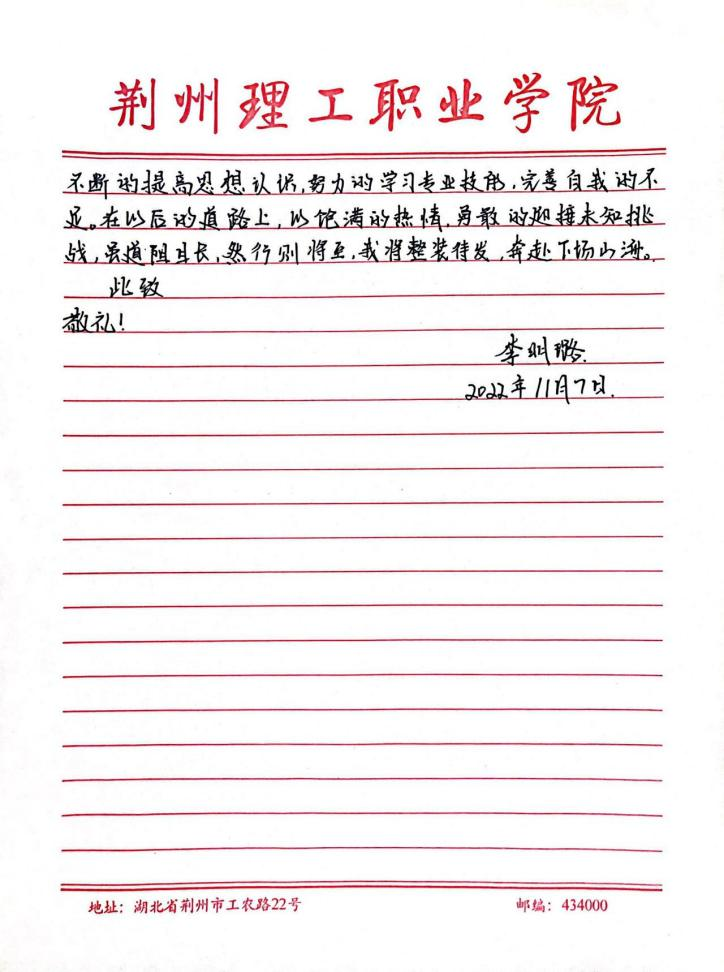 荆州理工职业学院
不断的提高思想认识,努力的学习专业技能,完善自我的不
足。在以后的道路上,以饱满的热情,勇敢的迎接未知挑
战,虽道阻且长,然行则将至,我将整装待发,奔赴下场山海。
此致
敬礼!
李明璐.
2022年11月7日.
地址:湖北省荆州市工农路22号
邮编:434000